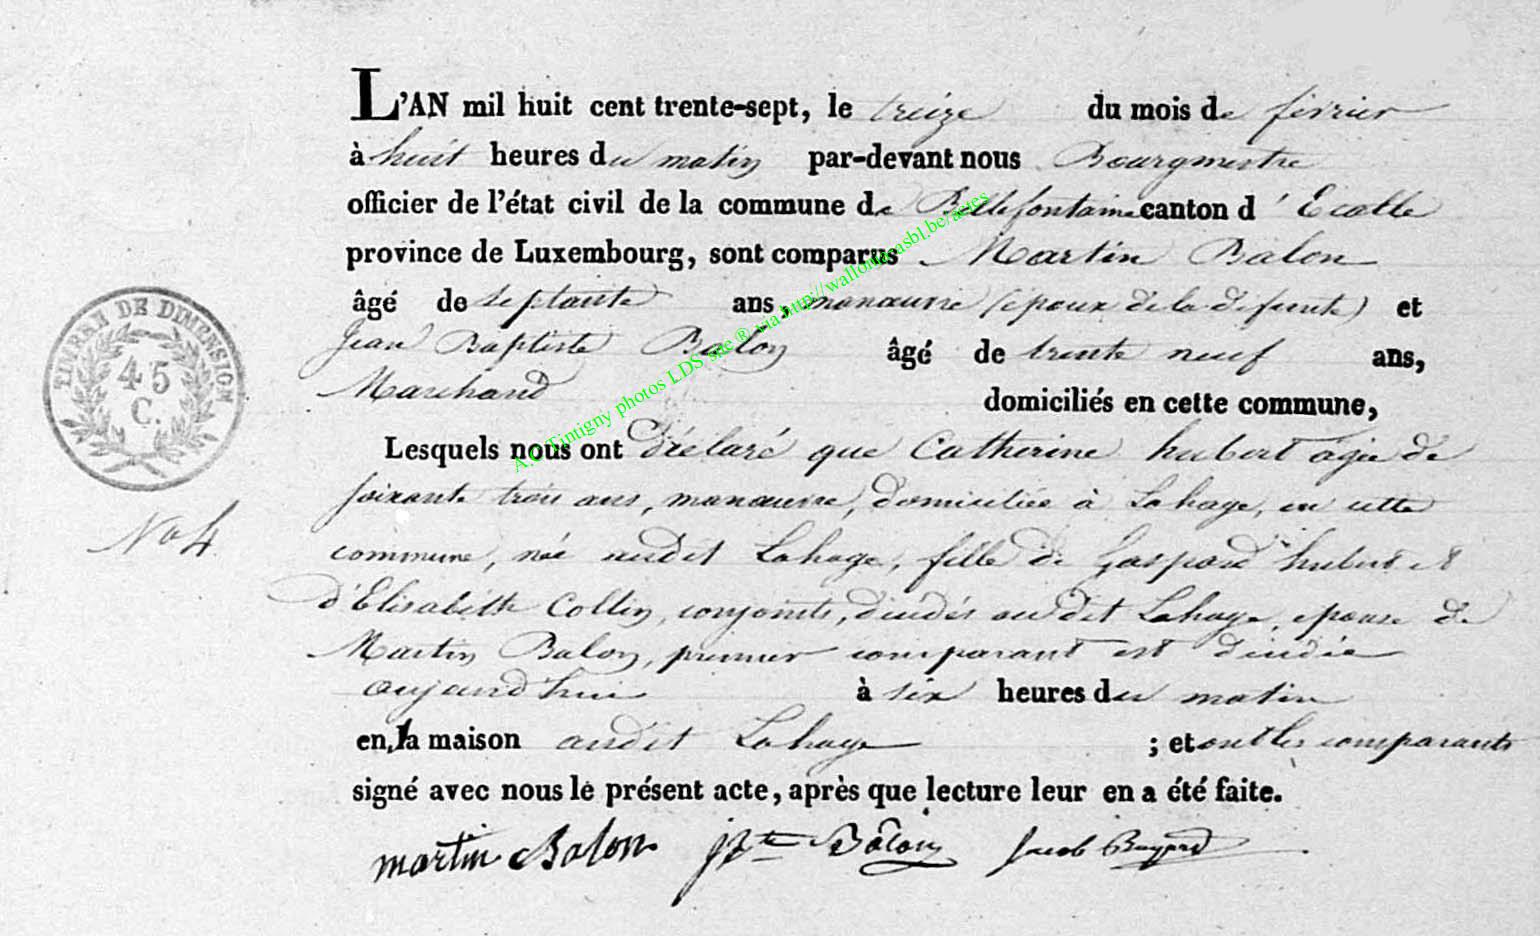 L'AN mil huit cent trente-sept, le treize du mois de février
à huit heures du matin par-devant nous Bourgmestre
officier de l'état civil de la commune de Bellefontaine canton d'Etalle
province de Luxembourg, sont comparus Martin Balon
âgé de septante ans, manœuvre (époux de la défunte) et
Jean Baptiste Balon âgé de trente neuf ans,
Marchand domiciliés en cette commune,
Lesquels nous ont déclaré que Catherine hubert agée de
soixante trois ans, manœuvre, domiciliée à Lahage, en cette
commune, née audit Lahage, fille de Gaspard hubert et
d'Elisabeth Collin, conjoints, décédés audit Lahage, epouse de
Martin Balon, premier comparant est décédée
aujourd'hui à six heures du matin
en la maison audit Lahage ; et ont les comparants
signé avec nous le présent acte, après que lecture leur en a été faite.
martin Balon J Bte Balon Jacob Bayard
TIMBRE DE DIMENSION
45
C.
No 4
A.C Tintigny photos LDS site ® via http://wallonicasbl.be/actes